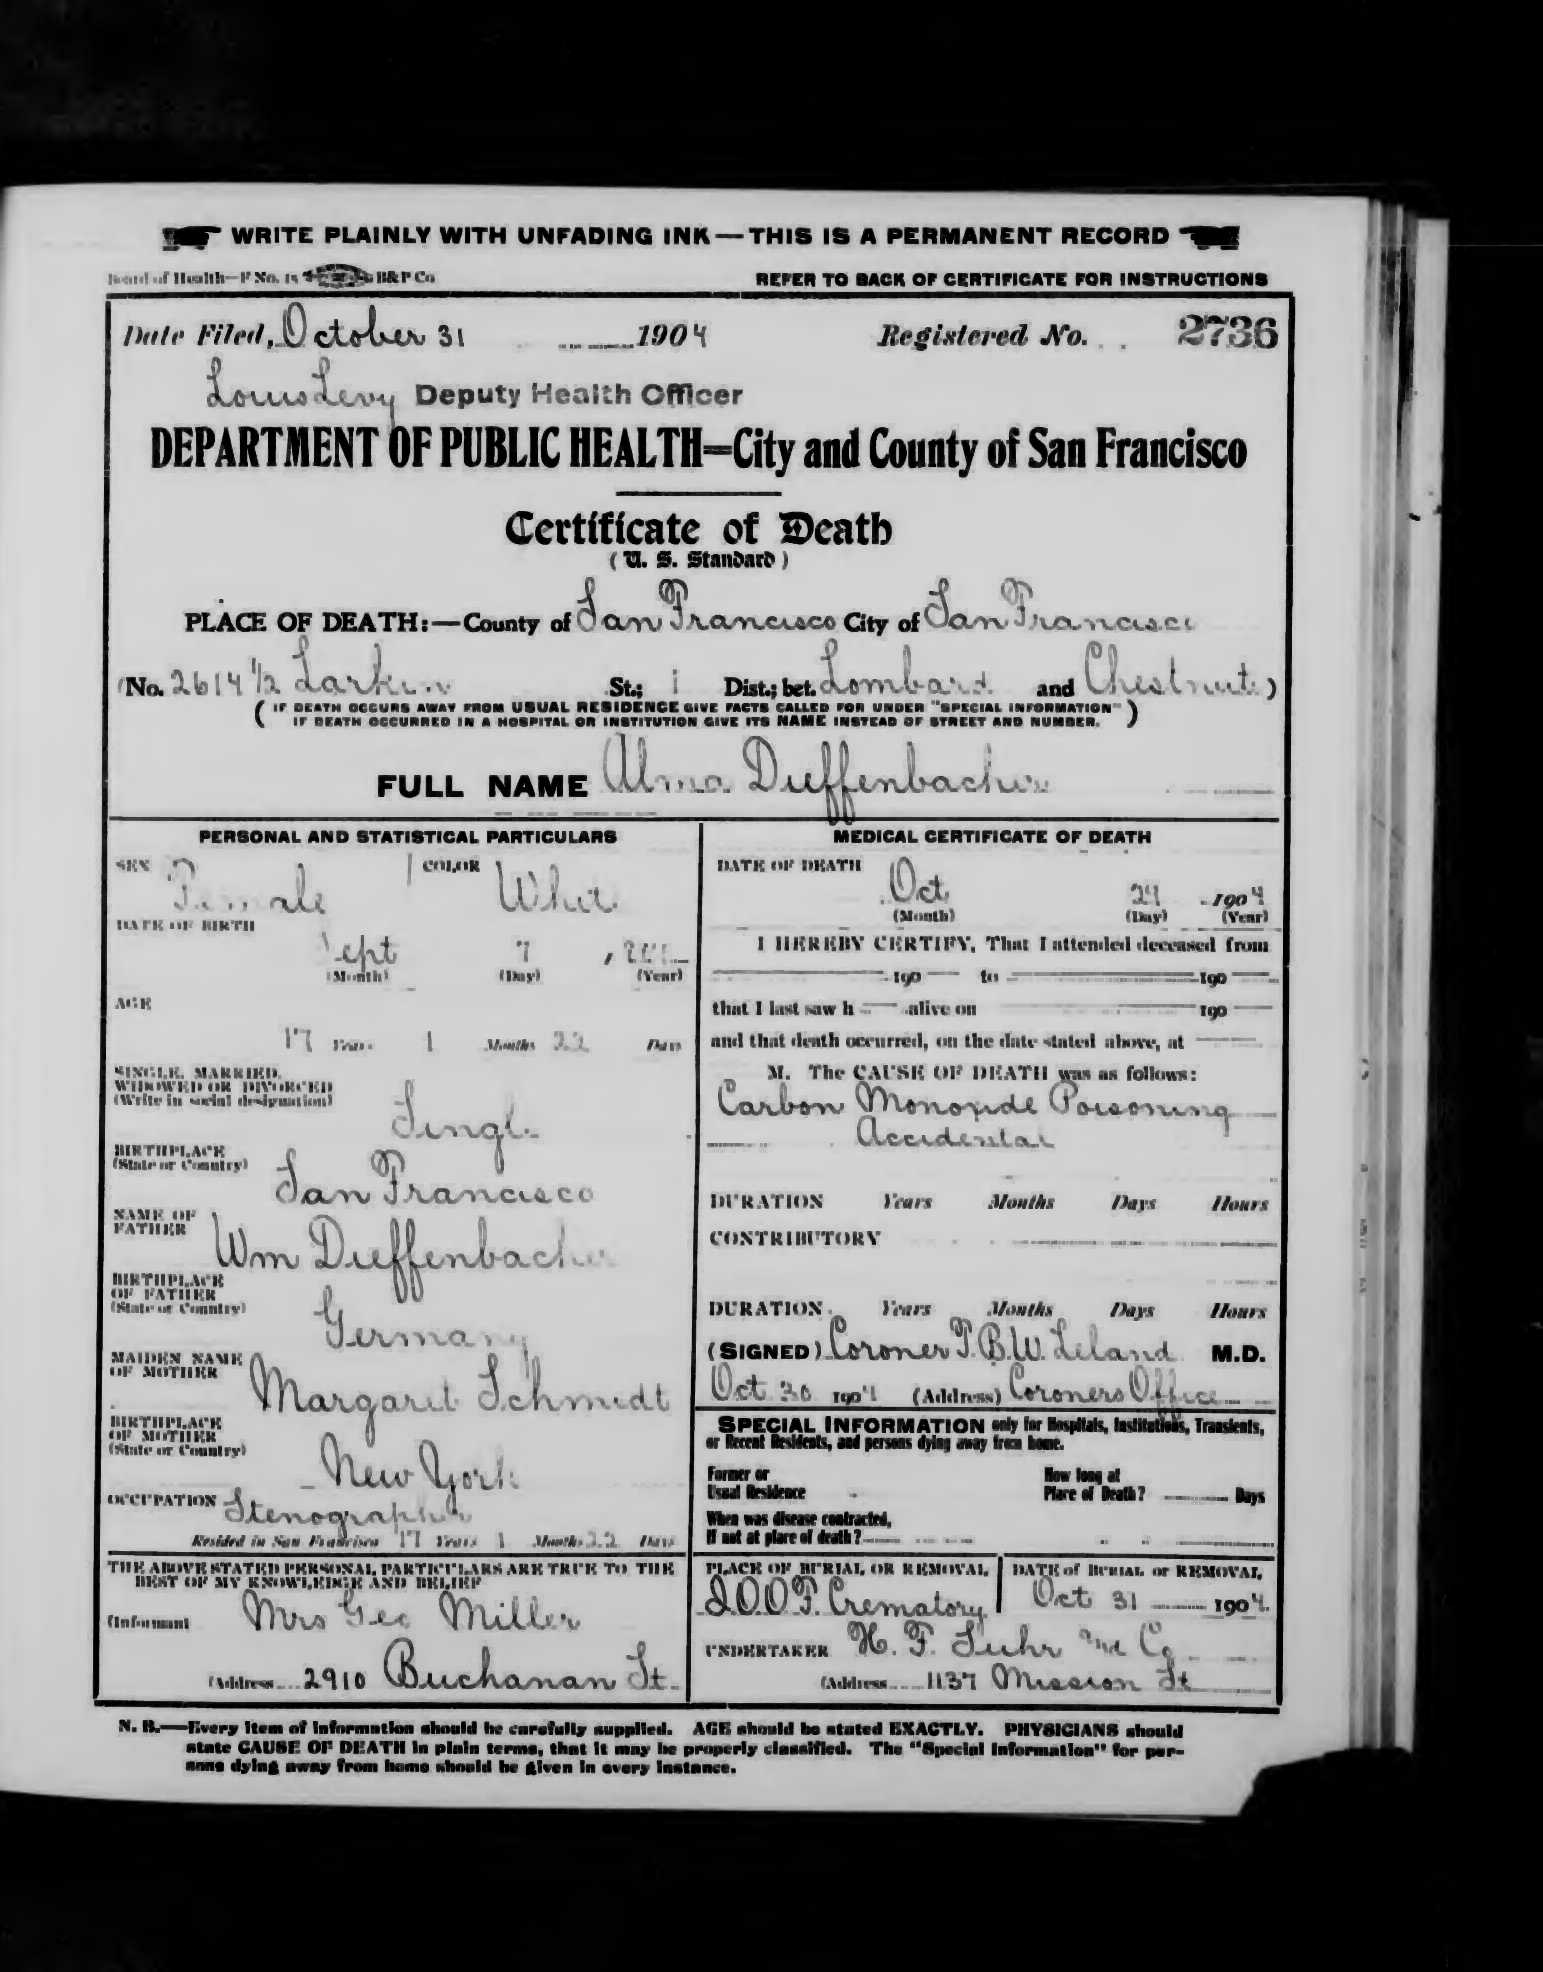 WRITE PLAINLY WITH UNFADING INK—THIS IS A PERMANENT RECORD
Board of Health—F No. 15 B&P Co
REFER TO BACK OF CERTIFICATE FOR INSTRUCTIONS
Date Filed, October 31 1904 Registered No. 2736
Louis Levy Deputy Health Officer
DEPARTMENT OF PUBLIC HEALTH=City and County of San Francisco
Certificate of Death
(U. S. Standard)
PLACE OF DEATH:—County of San Francisco City of San Francisco
(No. 2614 1/2 Larkin St.; 1 Dist.; bet. Lombard and Chestnut)
(IF DEATH OCCURS AWAY FROM USUAL RESIDENCE GIVE FACTS CALLED FOR UNDER "SPECIAL INFORMATION"
IF DEATH OCCURRED IN A HOSPITAL OR INSTITUTION GIVE ITS NAME INSTEAD OF STREET AND NUMBER.)
FULL NAME Alma Dieffenbacher
PERSONAL AND STATISTICAL PARTICULARS
SEX Female COLOR White
DATE OF BIRTH
Sept 7 , 
(Month) (Day) (Year)
AGE
17 Years 1 Months 22 Days
SINGLE, MARRIED,
WIDOWED OR DIVORCED
(Write in social designation)
Single
BIRTHPLACE
(State or Country)
San Francisco
NAME OF
FATHER
Wm Dieffenbacher
BIRTHPLACE
OF FATHER
(State or Country)
Germany
MAIDEN NAME
OF MOTHER
Margaret Schmidt
BIRTHPLACE
OF MOTHER
(State or Country)
New York
OCCUPATION Stenographer
Resided in San Francisco 17 Years 1 Months 22 Days
THE ABOVE STATED PERSONAL PARTICULARS ARE TRUE TO THE
BEST OF MY KNOWLEDGE AND BELIEF
(Informant Mrs Geo Miller
(Address 2910 Buchanan St.
MEDICAL CERTIFICATE OF DEATH
DATE OF DEATH
Oct 29 1904
(Month) (Day) (Year)
I HEREBY CERTIFY, That I attended deceased from
190 to 190
that I last saw h alive on 190
and that death occurred, on the date stated above, at
M. The CAUSE OF DEATH was as follows:
Carbon Monoxide Poisoning
Accidental
DURATION Years Months Days Hours
CONTRIBUTORY
DURATION Years Months Days Hours
(SIGNED) Coroner T. B. W. Leland M.D.
Oct 30 1904 (Address) Coroners Office
SPECIAL INFORMATION only for Hospitals, Institutions, Transients,
or Recent Residents, and persons dying away from home.
Former or
Usual Residence
How long at
Place of Death? Days
When was disease contracted,
If not at place of death?
PLACE OF BURIAL OR REMOVAL
I.O.O.F. Crematory
DATE of BURIAL or REMOVAL
Oct 31 1904
UNDERTAKER H. F. Suhr and Co
(Address 1137 Mission St
N. B.—Every item of information should be carefully supplied. AGE should be stated EXACTLY. PHYSICIANS should
state CAUSE OF DEATH in plain terms, that it may be properly classified. The "Special Information" for per-
sons dying away from home should be given in every instance.